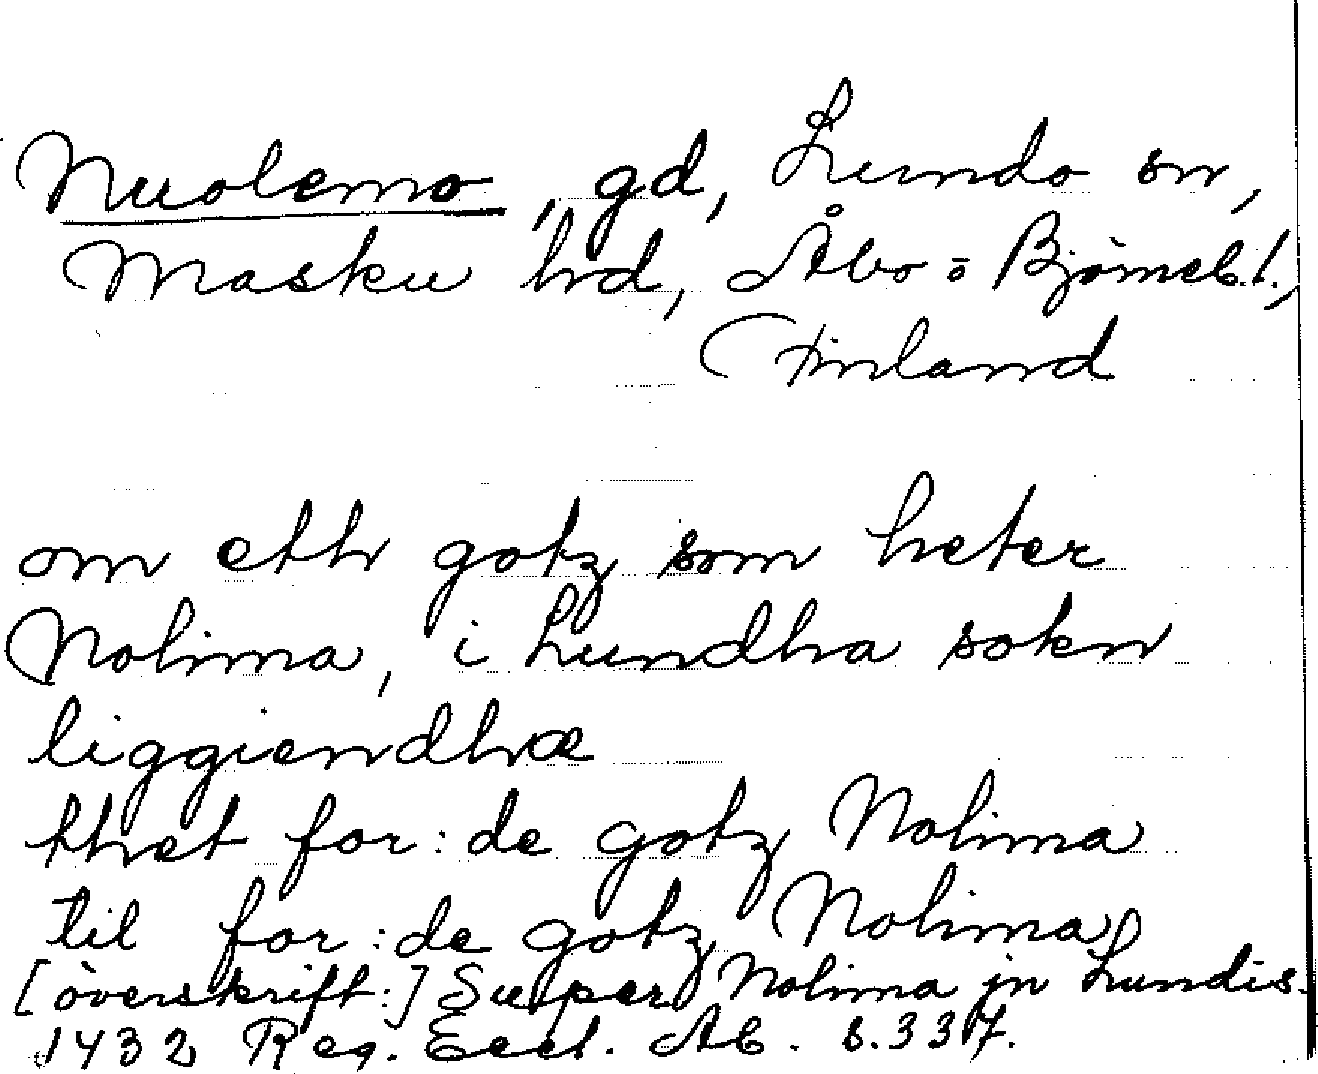 Nuolemo, gd, Lundo sn,
Masku hd, Åbo o Björneb.l.,
Finland
om eth gotz som heter
Nolima, i Lundha sokn
liggiendhæ
thet for:de gotz Nolima
til for:de gotz Nolima
[överskrift:] Super Nolima jn Lundis.
1432 Reg. Eccl. Ab. s.337.